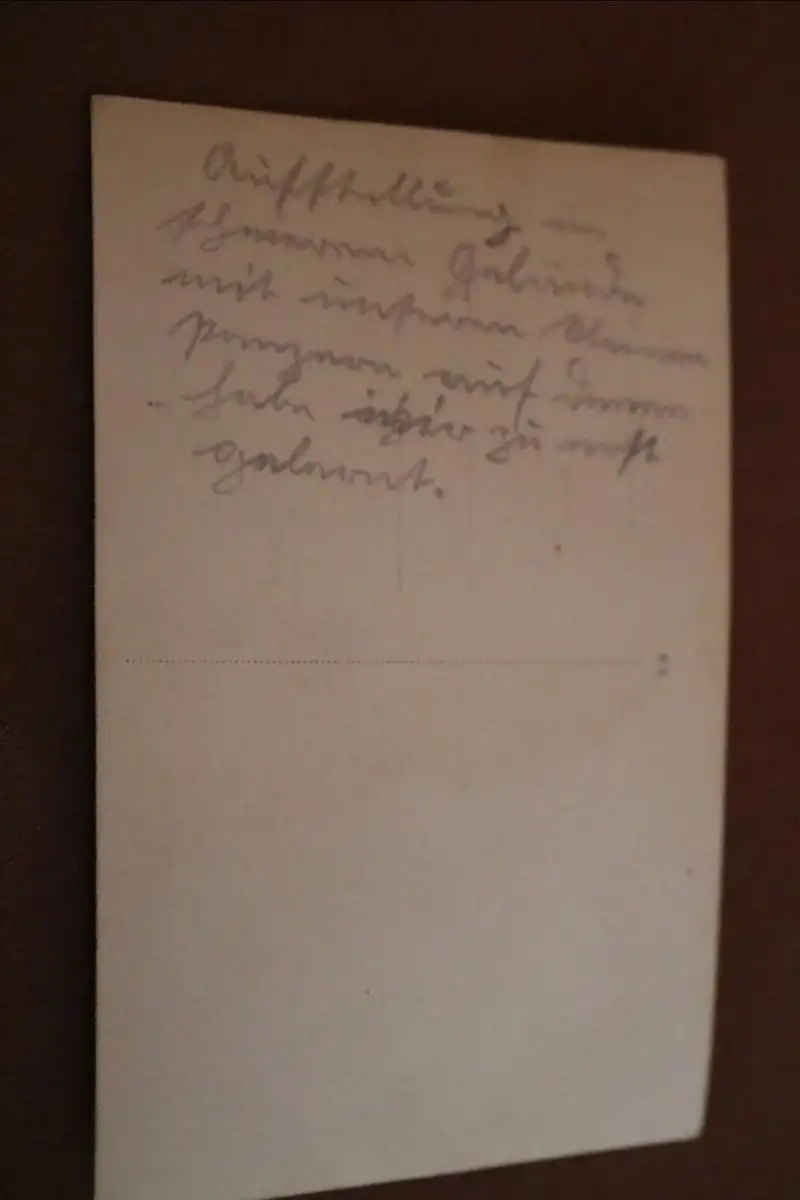 Aufstellung im
schweren Gelände
mit unseren kleinen
Panzern auf denen
habe zu erst
gelernt.